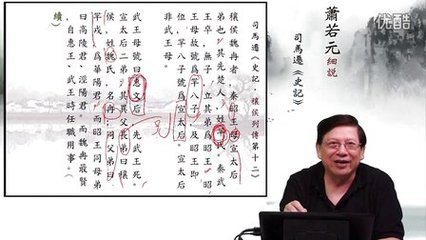 蕭若元
細說
司馬遷《史記》
司馬遷《史記．穰侯列傳第十二》
穰侯魏冉者，秦昭王母宣太后
弟也。其先楚人，姓羋氏。秦武
王卒，無子，立其弟為昭王。昭
王母故號為羋八子，及昭王即
位，羋八子號為宣太后。宣太后
非武王母。
武王母號曰惠文后，先武王死。
宣太后二弟：其異父長弟曰穰
侯，姓魏氏，名冉；同父弟曰
羋戎，為華陽君。而昭王同母弟
曰高陵君、涇陽君。而魏冉最賢，
自惠王、武王時任職用事。（
續）
优酷